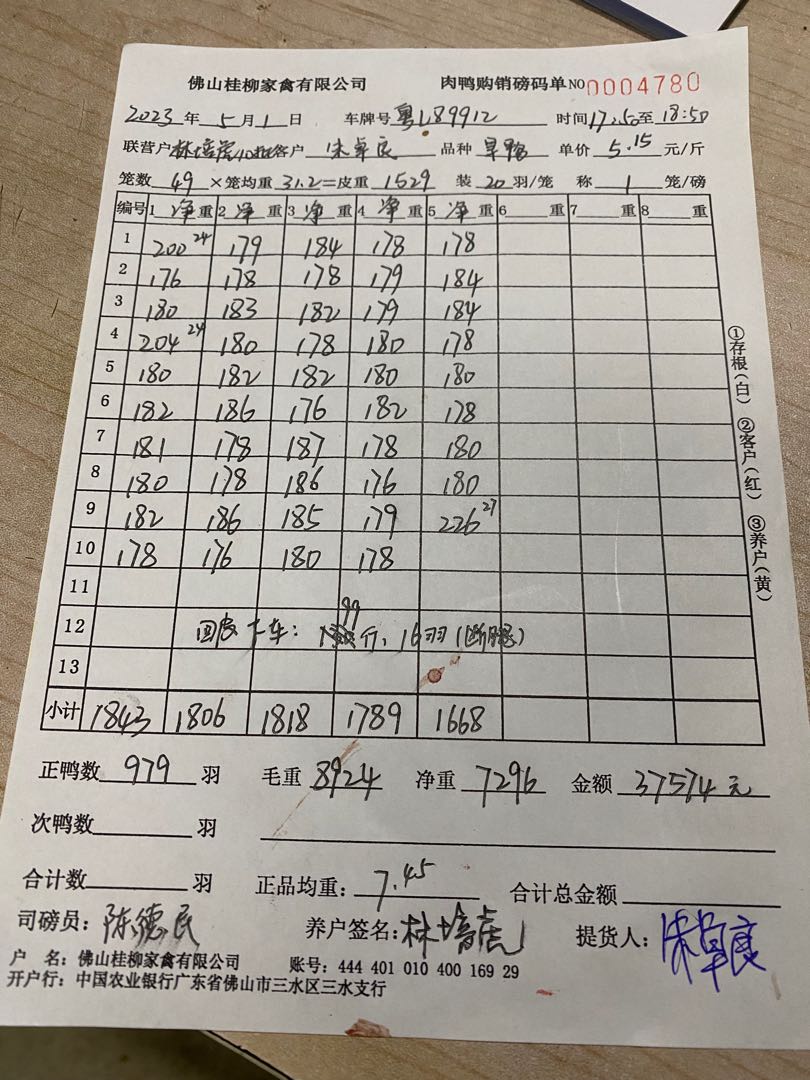 佛山桂柳家禽有限公司 肉鸭购销磅码单 NO 0004780
2023年5月1日 车牌号 粤L89912 时间17:50至18:50
联营户 林培虎 客户 朱卓良 品种 旱鸭 单价 5.15 元/斤
笼数 49 ×笼均重 31.2=皮重 1529 装 20 羽/笼 称 1 笼/磅
编号 1 净重 2 净重 3 净重 4 净重 5 净重 6 重 7 重 8 重
1 200 24 179 184 178 178
2 176 178 178 179 184
3 180 183 182 179 184
4 204 24 180 178 180 178
5 180 182 182 180 180
6 182 186 176 182 178
7 181 178 187 178 180
8 180 178 186 176 180
9 182 186 185 179 226 27
10 178 176 180 178
11
12 回皮卡车: 99 斤, 16羽(断腿)
13
小计 1843 1806 1818 1789 1668
正鸭数 979 羽 毛重 8924 净重 7296 金额 37574元
次鸭数 羽
合计数 羽 正品均重: 7.45 合计总金额
司磅员: 陈德民 养户签名: 林培虎 提货人: 朱卓良
户 名: 佛山桂柳家禽有限公司 账号: 444 401 010 400 169 29
开户行: 中国农业银行广东省佛山市三水区三水支行
①存根(白) ②客户(红) ③养户(黄)